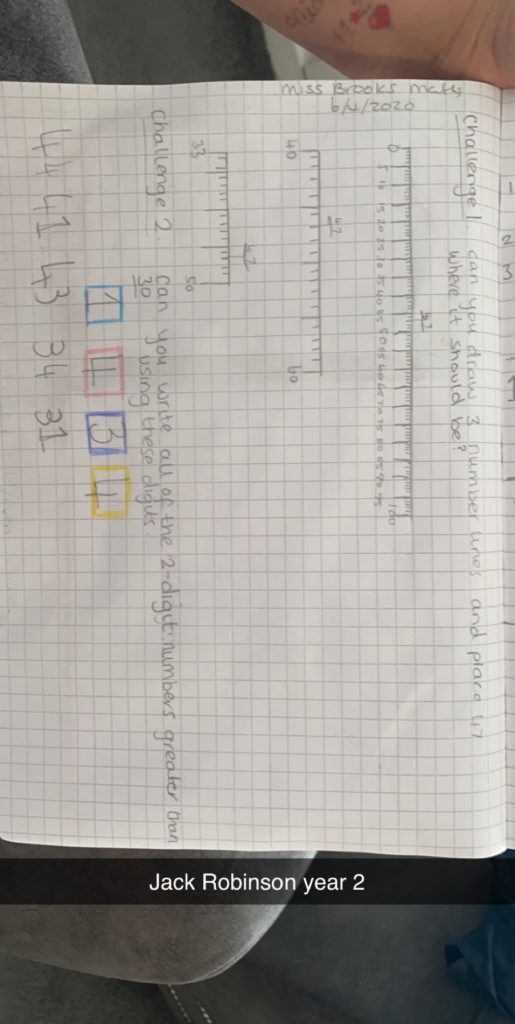 Miss Brooks maths
6/4/2020
Challenge 1. Can you draw 3 number lines and place 47
where it should be?
47
0 5 10 15 20 25 30 35 40 45 50 55 60 65 70 75 80 85 90 95 100
47
40 60
47
33 50
Challenge 2. Can you write all of the 2-digit numbers greater than
30 using these digits.
1 4 3 4
44 41 43 34 31
Jack Robinson year 2